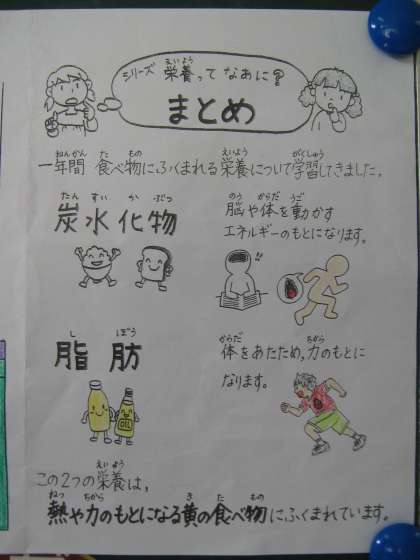 シリーズ 栄養ってなあに?
えいよう
まとめ
ねんかん た もの えいよう がくしゅう
一年間 食べ物にふくまれる栄養について学習してきました。
たん すい か ぶつ
炭水化物
のう からだ うご
脳や体を動かす
エネルギーのもとになります。
!!
し ぼう
脂肪
からだ ちから
体をあたため,力のもとに
なります。
OIL
えいよう
この2つの栄養は,
ねつ ちから き た もの
熱や力のもとになる黄の食べ物にふくまれています。